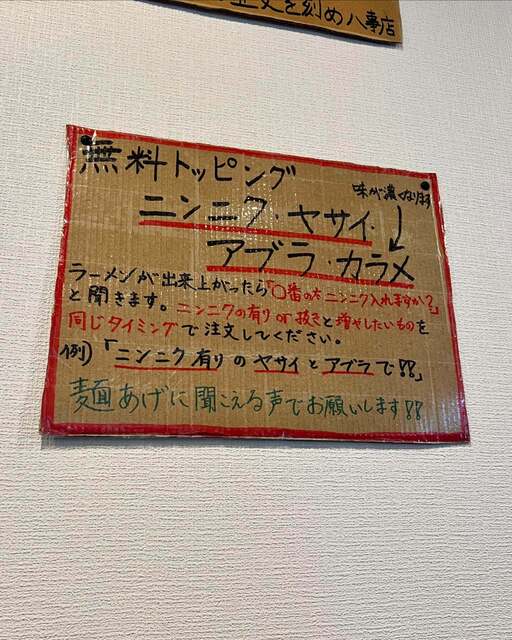 歴史を刻め八事店
無料トッピング
味が濃くなります
ニンニク・ヤサイ・
アブラ・カラメ
ラーメンが出来上がったら「〇番の方ニンニク入れますか?」
と聞きます。ニンニクの有り or 抜きと増やしたいものを
同じタイミングで注文してください。
例)「ニンニク有りのヤサイとアブラで!!」
麺あげに聞こえる声でお願いします!!